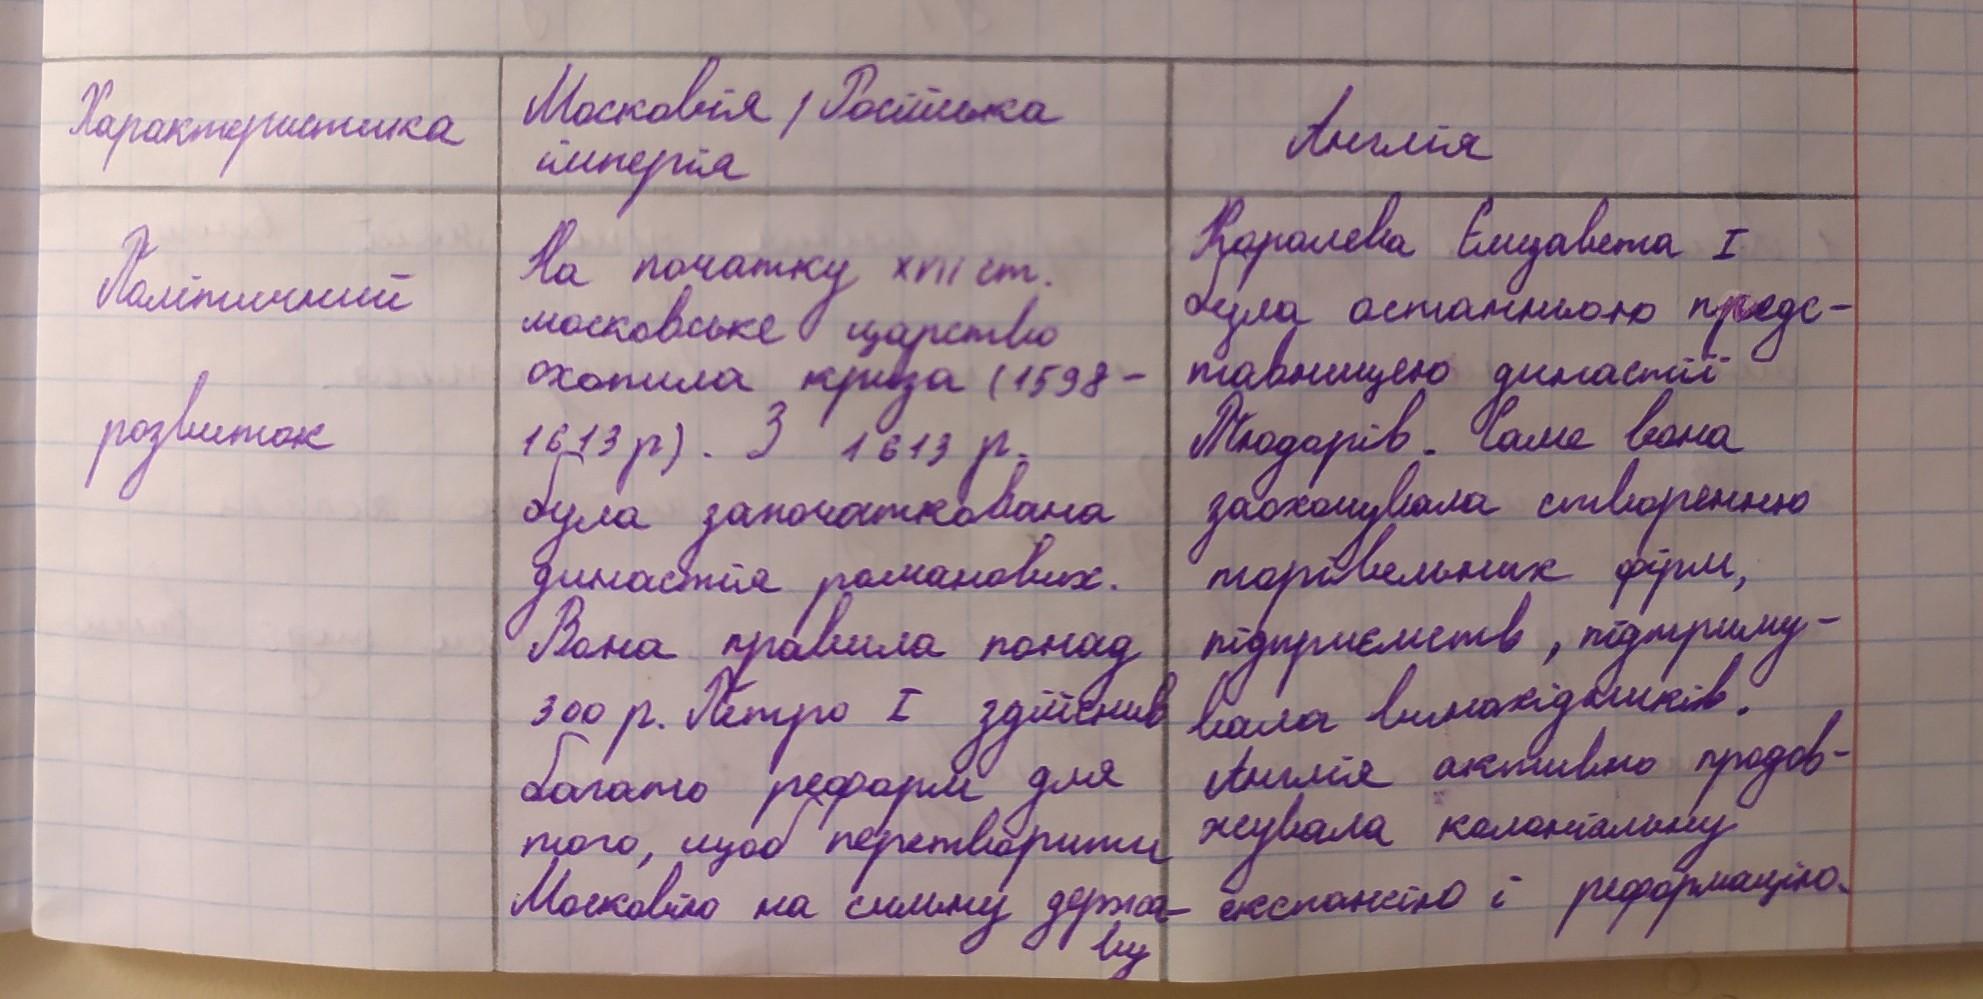 Характеристика
Московія / Російська
імперія
Англія
Політичний
розвиток
На початку XVII ст.
московське царство
охопила криза (1598-
1613 р). З 1613 р.
була започаткована
династія романових.
Вона правила понад
300 р. Петро I здійснив
багато реформ для
того, щоб перетворити
Московію на сильну держа-
ву
Королева Єлизавета I
була останньою предс-
тавницею династії
Тюдорів. Саме вона
заохочувала створенню
торгівельних фірм,
підприємств, підтриму-
вала винахідників.
Англія активно продов-
жувала колоніальну
експансію і реформацію.